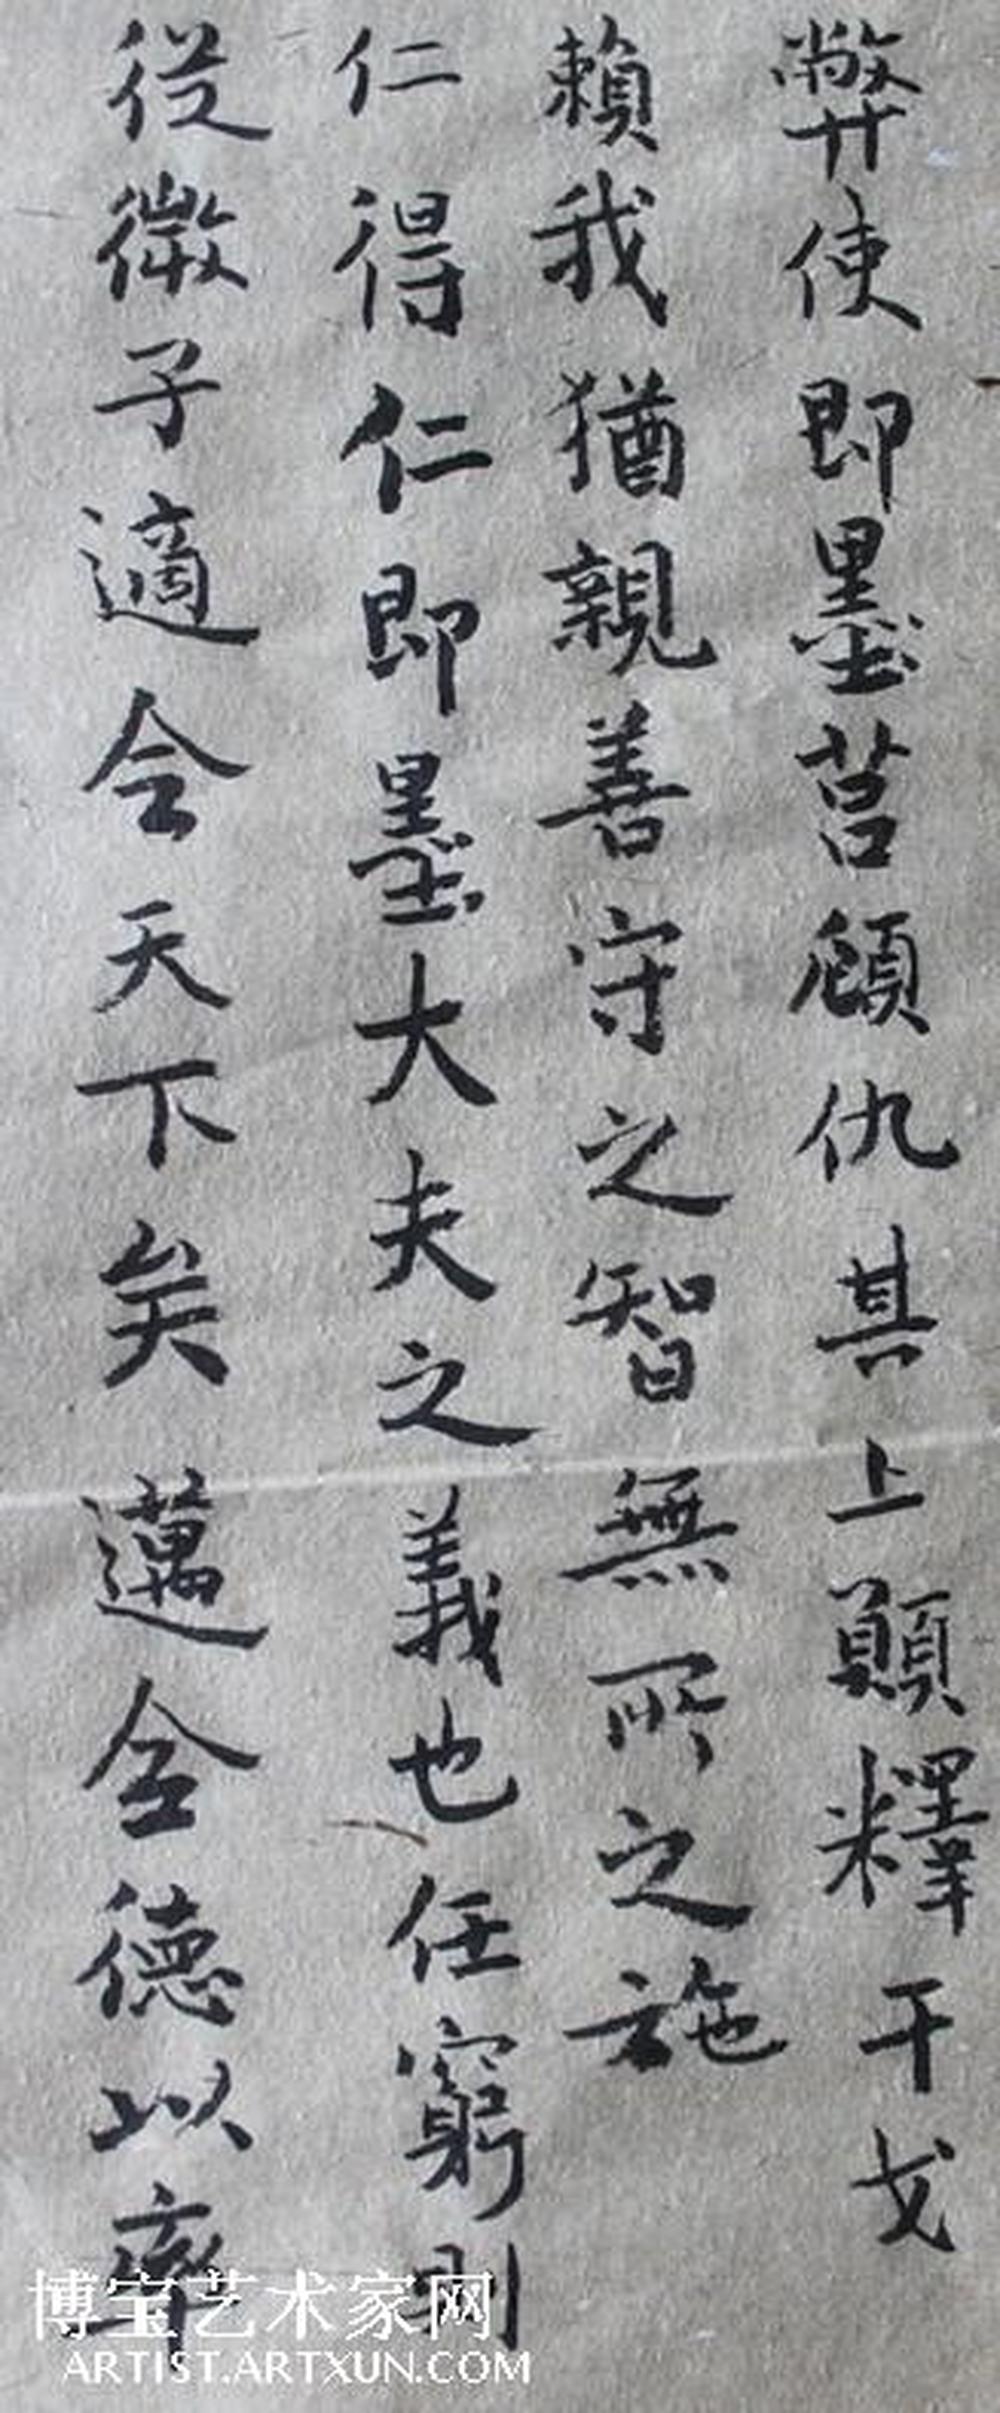 弊使即墨莒顧仇其上願釋干戈
賴我猶親善守之智無所之施
仁得仁即墨大夫之義也任窮則
從微子適令天下矣邁全德以率
博宝艺术家网
ARTIST.ARTXUN.COM